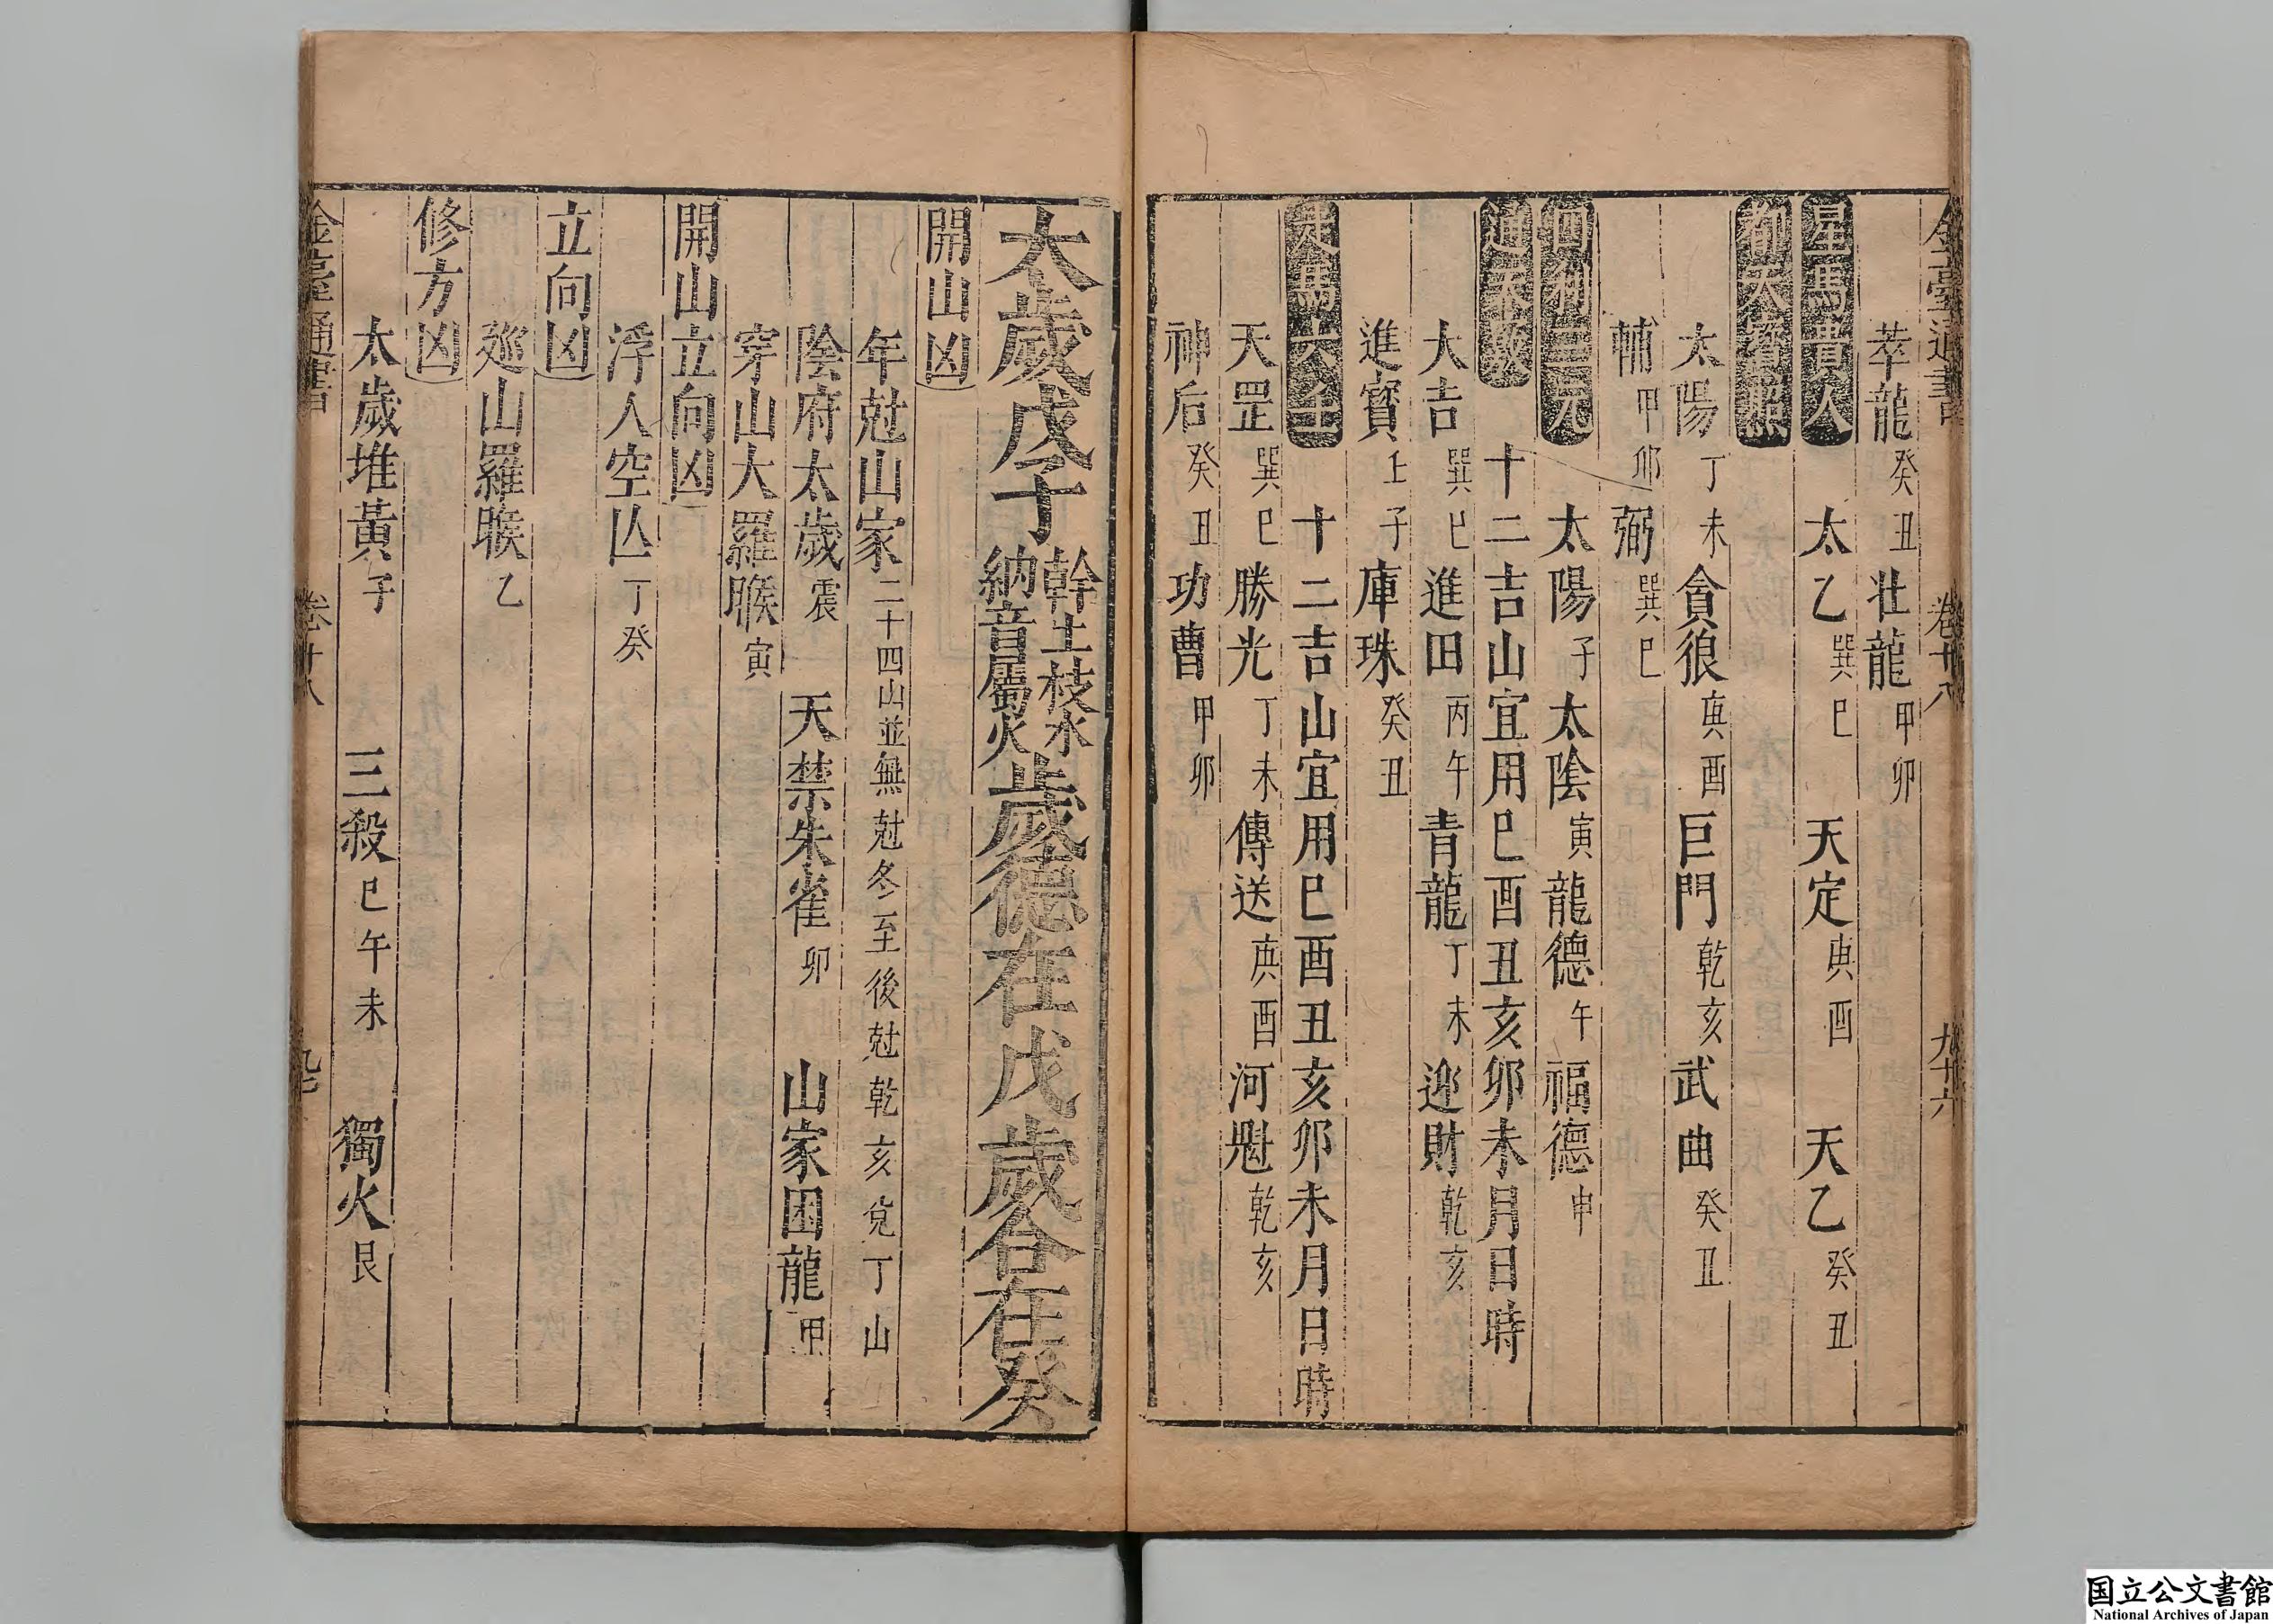 金臺通書 卷十八 九十六
萃龍癸丑 壯龍甲卯
星馬貴人 太乙巽巳 天定庚酉 天乙癸丑
都天寳照
太陽丁未 貪狼庚酉 巨門乾亥 武曲癸丑
輔甲卯 弼巽巳
四利三元 太陽子 太陰寅 龍德午 福德申
通天竅 十二吉山宜用巳酉丑亥卯未月日時
大吉巽巳 進田丙午 青龍丁未 迎財乾亥
進寳壬子 庫珠癸丑
走馬六壬 十二吉山宜用巳酉丑亥卯未月日時
天罡巽巳 勝光丁未 傳送庚酉 河魁乾亥
神后癸丑 功曹甲卯
太歲戊子 幹土枝水 納音屬火 歲德在戊歲合在癸
開山凶
年尅山家二十四山並無尅冬至後尅乾亥兌丁山
陰府太歲震 天禁朱雀卯 山家困龍甲
穿山大羅睺寅
開山立向凶
浮人空亾丁癸
立向凶
廵山羅睺乙
修方凶
太歲堆黃子 三殺巳午未 獨火艮
金臺通書 卷十八 九七
国立公文書館
National Archives of Japan